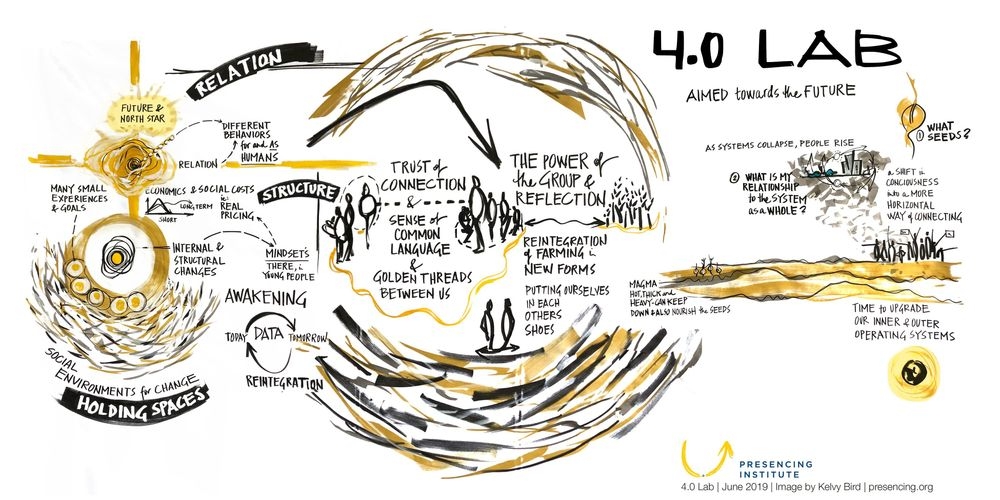 4.0 LAB
AIMED towards the FUTURE
RELATION
FUTURE &
NORTH STAR
DIFFERENT
BEHAVIORS
for and AS
HUMANS
RELATION
MANY SMALL
EXPERIENCES
& GOALS
ECONOMICS & SOCIAL COSTS
LONG TERM
SHORT
REAL
PRICING
STRUCTURE
INTERNAL &
STRUCTURAL
CHANGES
MINDSETS
THERE, in
YOUNG PEOPLE
AWAKENING
TODAY
DATA
TOMORROW
REINTEGRATION
SOCIAL
ENVIRONMENTS for CHANGE
HOLDING SPACES
TRUST of
CONNECTION
&
SENSE of
COMMON
LANGUAGE
&
GOLDEN THREADS
BETWEEN US
THE POWER of
the GROUP &
REFLECTION
REINTEGRATION
of FARMING in
NEW FORMS
PUTTING OURSELVES
IN EACH
OTHERS
SHOES
① WHAT
SEEDS?
AS SYSTEMS COLLAPSE, PEOPLE RISE
② WHAT IS MY
RELATIONSHIP
to the SYSTEM
as a WHOLE?
a SHIFT in
CONCIOUSNESS
into a MORE
HORIZONTAL
WAY of CONNECTING
MAGMA
HOT, THICK and
HEAVY-CAN KEEP
DOWN & ALSO NOURISH the SEEDS
TIME to UPGRADE
OUR INNER & OUTER
OPERATING SYSTEMS
PRESENCING
INSTITUTE
4.0 Lab | June 2019 | Image by Kelvy Bird | presencing.org